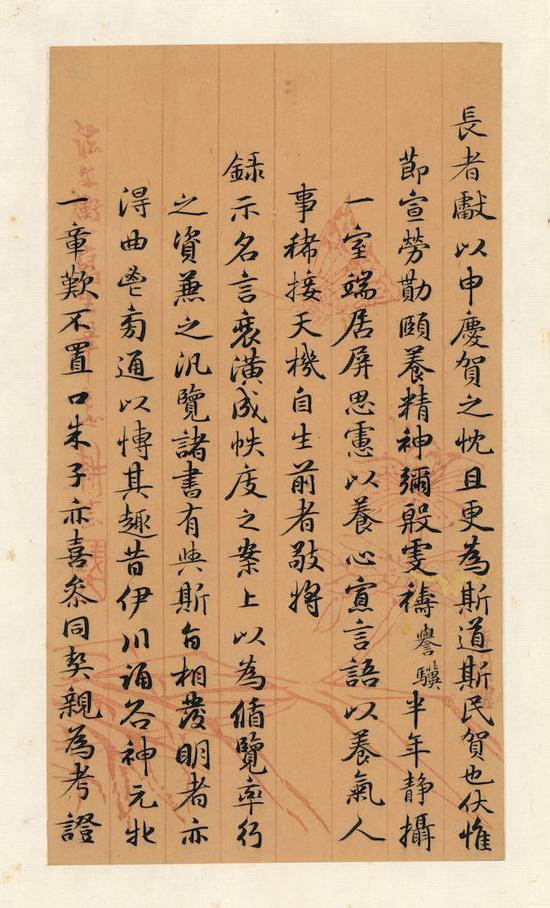 長者獻以申慶賀之忱且更為斯道斯民賀也伏惟
節宣勞勩頤養精神彌殷雯禱譽驥半年靜攝
一室端居屏思慮以養心寡言語以養氣人
事稀接天機自生前者敬將
錄示名言裝潢成帙庋之案上以為循覽率行
之資兼之汎覽諸書有與斯旨相發明者亦
淂曲鬯旁通以博其趣昔伊川誦谷神元牝
一章歎不置口朱子亦喜叅同契親為考證